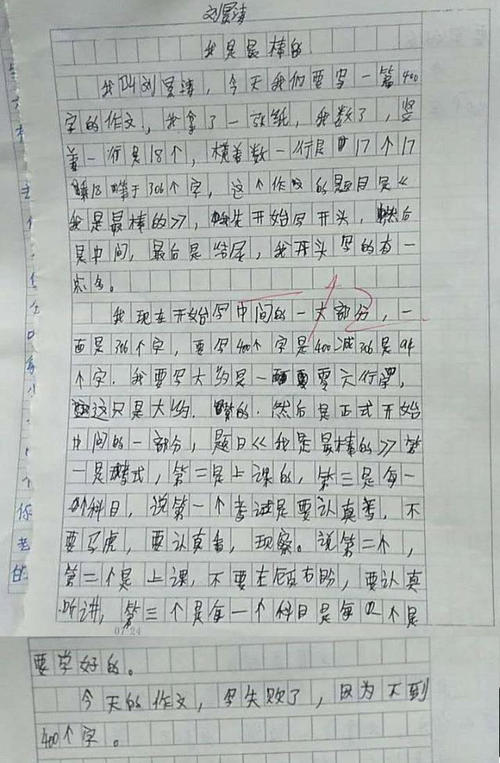 刘昱涛
我是最棒的
我叫刘昱涛,今天我们要写一篇400
字的作文,我拿了一张纸,我数了,竖
着一行是18个,横着数一行是17个17
乘18等于306个字,这个作文的题目是《
我是最棒的》,先开始写开头,然后
是中间,最后是结尾,我开头写的有一
点多。
我现在开始写中间的一大部分,一
面是306个字,要写400个字是400减306是94
个字.我要写大约是一面零六行,
这只是大约.然后是正式开始
中间的一部分,题目《我是最棒的》第
一是考试,第二是上课的,第三是每一
个科目,说第一个考试是要认真考,不
要马虎,要认真看,观察。说第二个,
第二个是上课,不要左顾右盼,要认真
听讲,第三个是每一个科目是每个是
07:24
要学好的。
今天的作文,写失败了,因为不到
400个字。
你
老